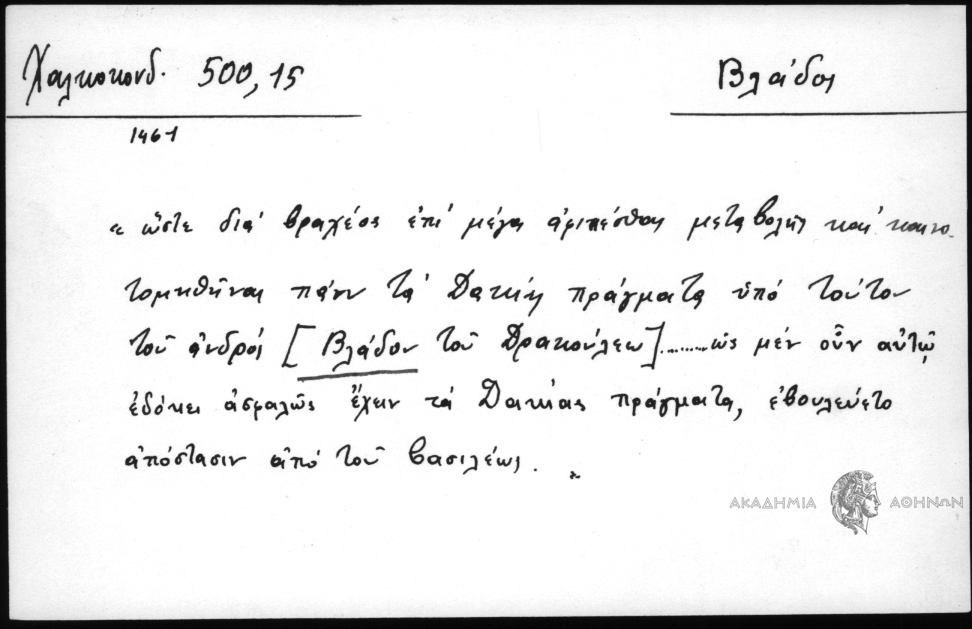 Χαλκοκονδ. 500,15
Βλάδος
1461
« ὥστε διὰ βραχέος ἐπὶ μέγα ἀφικέσθαι μεταβολῆς καὶ καινο-
τομηθῆναι πάνυ τὰ Δακίης πράγματα ὑπὸ τούτου
τοῦ ἀνδρός [Βλάδου τοῦ Δρακούλεω]........ὡς μὲν οὖν αὐτῷ
ἐδόκει ἀσφαλῶς ἔχειν τὰ Δακίας πράγματα, ἐβουλεύετο
ἀπόστασιν ἀπὸ τοῦ βασιλέως. »
ΑΚΑΔΗΜΙΑ ΑΘΗΝΩΝ